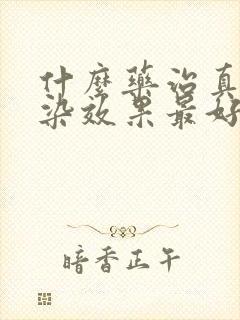 什麼藥治真
染效果最好
暗香正午